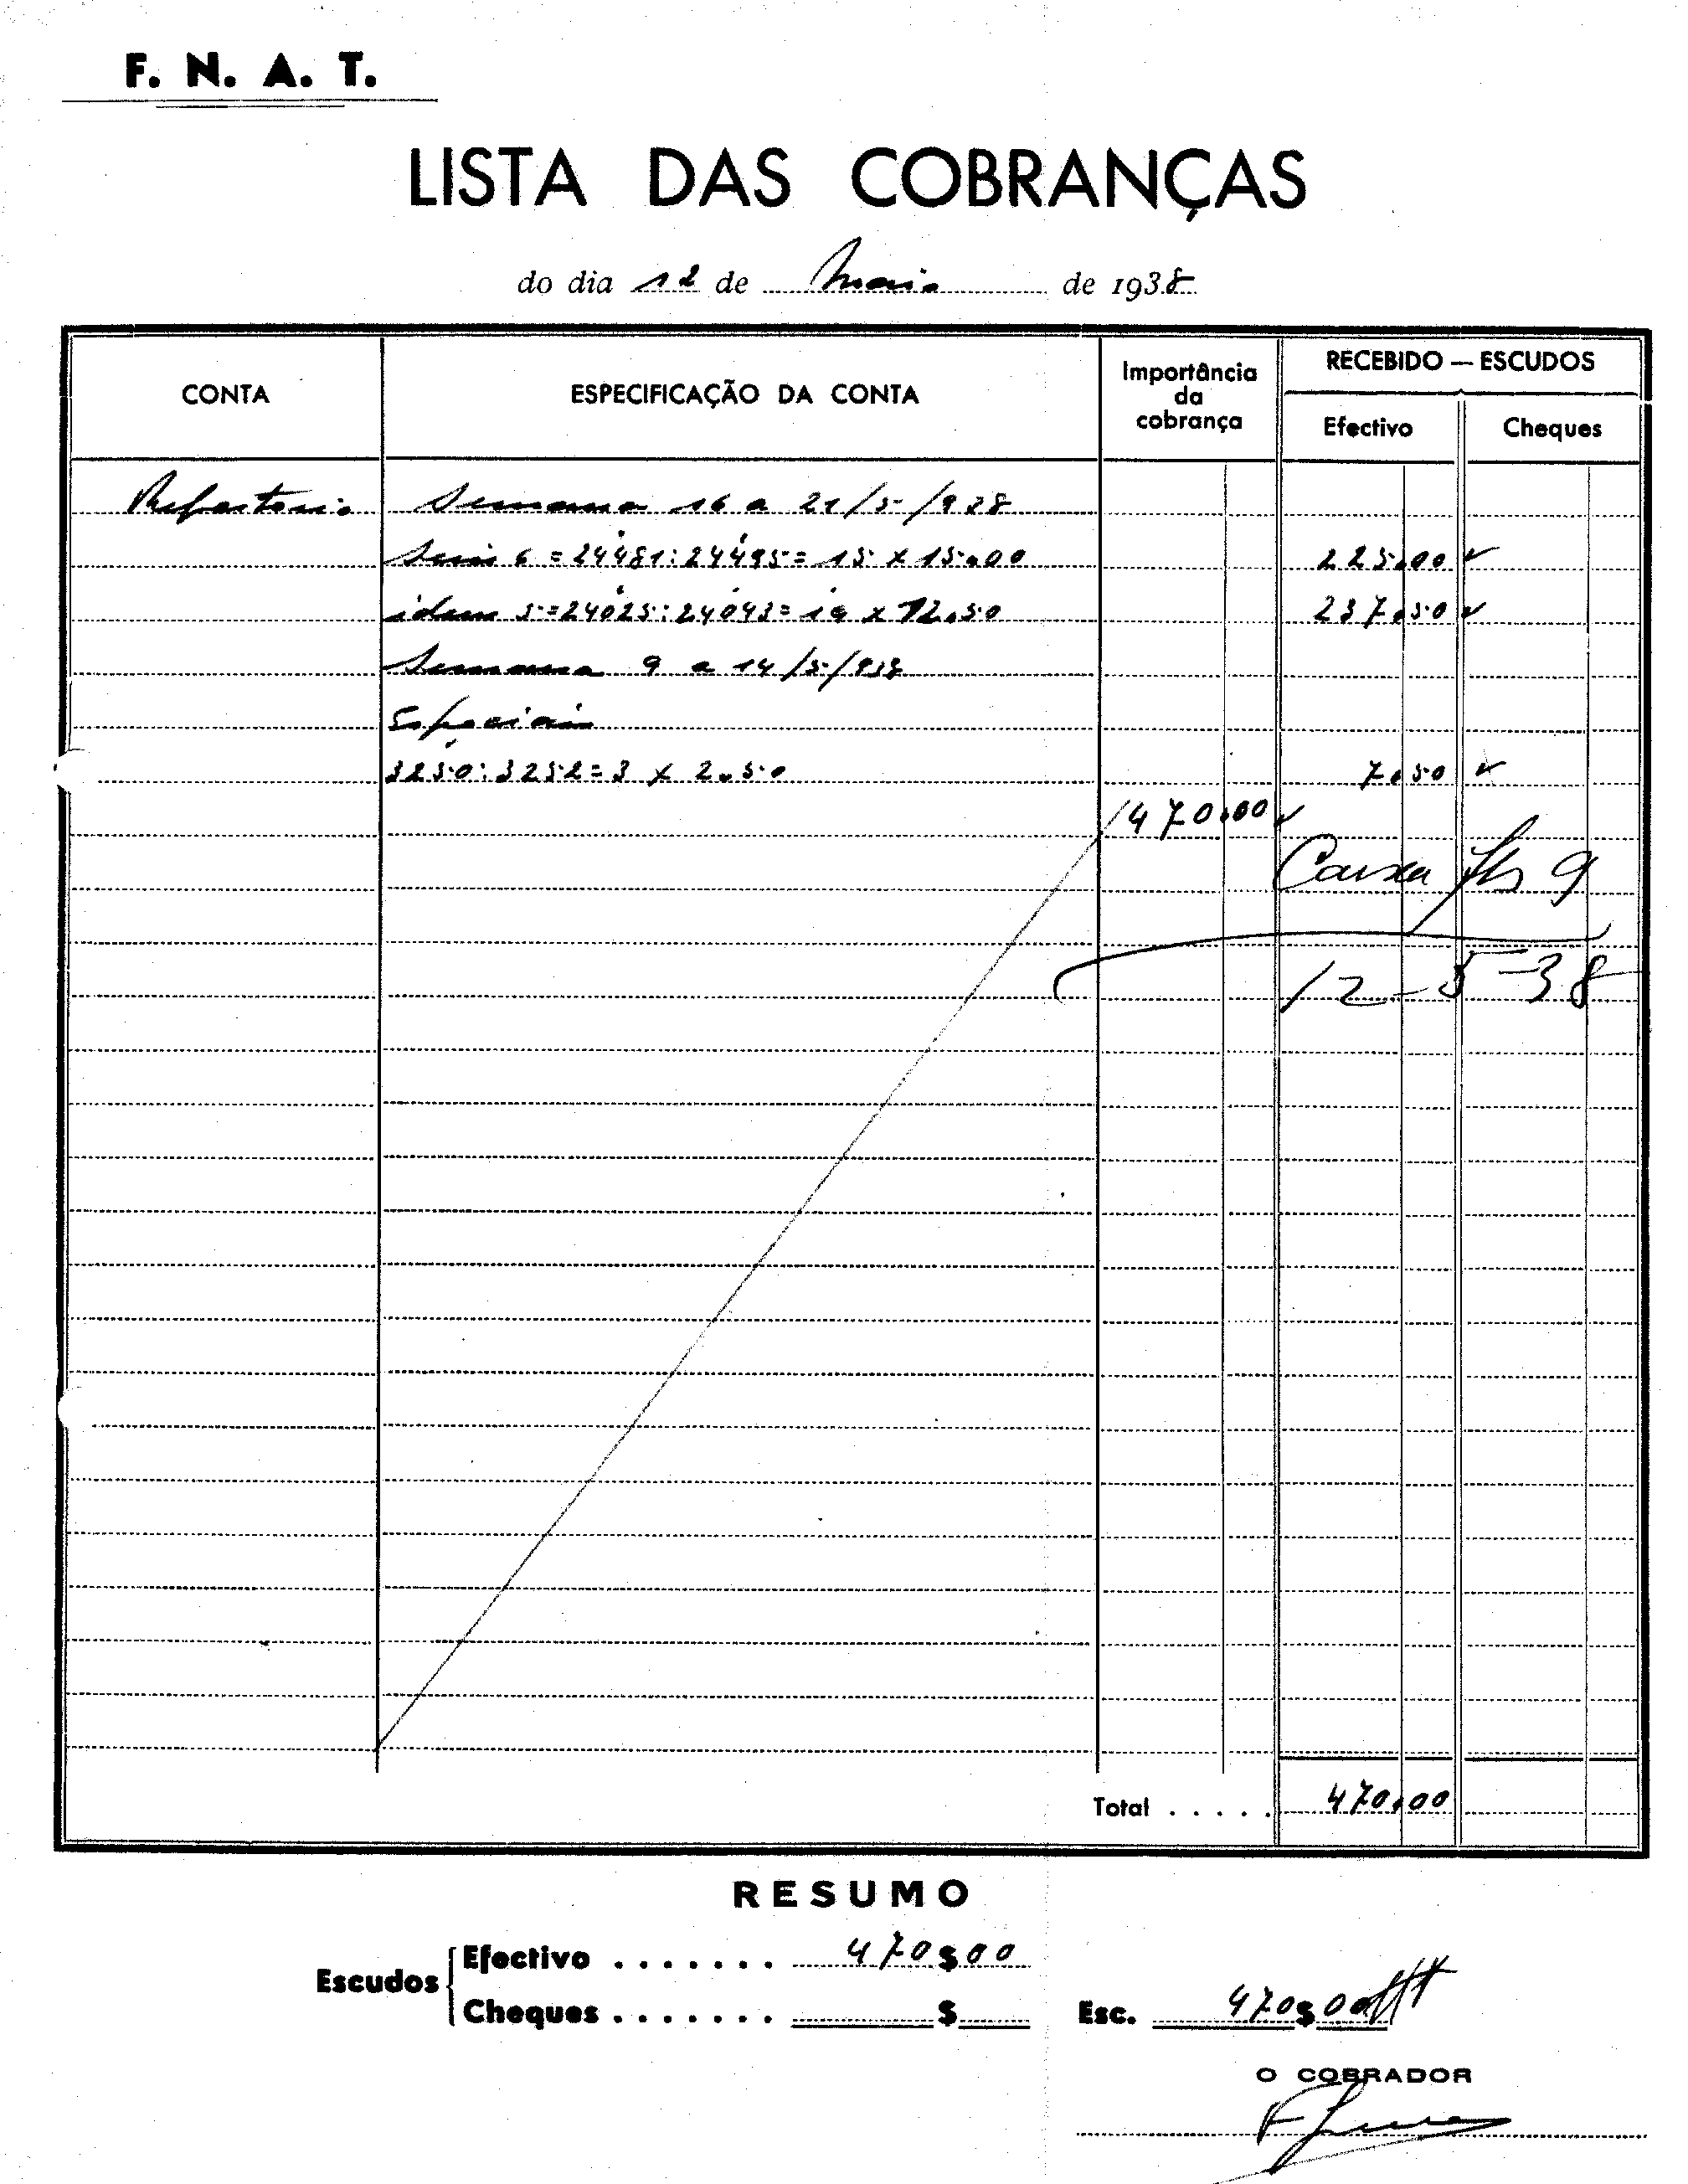 F. N. A. T.
LISTA DAS COBRANÇAS
do dia 12 de Maio de 1938
CONTA
ESPECIFICAÇÃO DA CONTA
Importância
da
cobrança
RECEBIDO — ESCUDOS
Efectivo
Cheques
Refeitorio Semana 16 a 21/5/938
Serie 6 = 24481:24495 = 15 x 15.00 225.00
idem 5 = 24025:24043 = 19 x 12.50 237.50
Semana 9 a 14/5/938
Especiais
3250:3252 = 3 x 2.50 7.50
470.00
Caixa fls 9
12-5-38
Total . . . . . 470.00
RESUMO
Escudos
Efectivo . . . . . . . 470$00
Cheques . . . . . . . $
Esc. 470$00
O COBRADOR